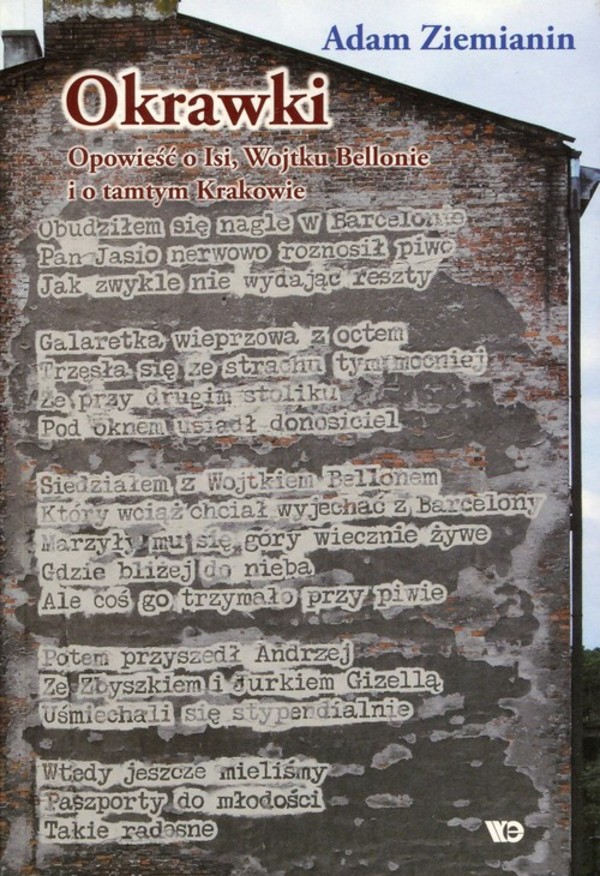 Adam Ziemianin
Okrawki
Opowieść o Isi, Wojtku Bellonie
i o tamtym Krakowie
Obudziłem się nagle w Barcelonie
Pan Jasio nerwowo roznosił piwo
Jak zwykle nie wydając reszty
Galaretka wieprzowa z octem
Trzęsła się ze strachu tym mocniej
Że przy drugim stoliku
Pod oknem usiadł donosiciel
Siedziałem z Wojtkiem Bellonem
Który wciąż chciał wyjechać z Barcelony
Marzyły mu się góry wiecznie żywe
Gdzie bliżej do nieba
Ale coś go trzymało przy piwie
Potem przyszedł Andrzej
Ze Zbyszkiem i Jurkiem Gizellą
Uśmiechali się stypendialnie
Wtedy jeszcze mieliśmy
Paszporty do młodości
Takie radosne
we